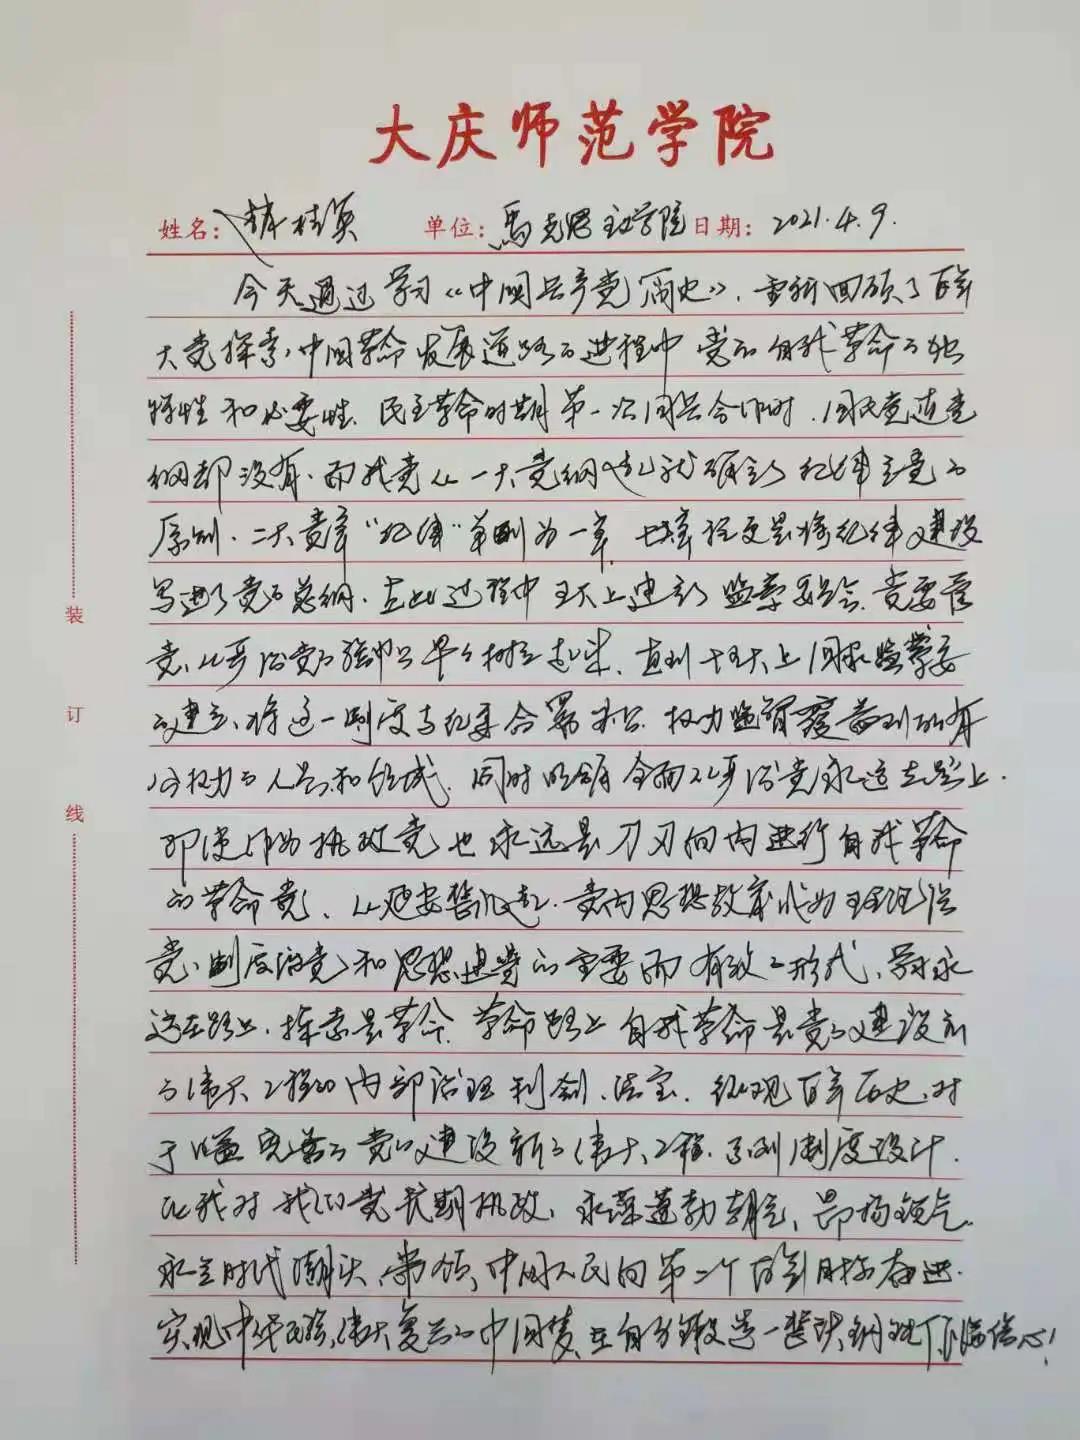 大庆师范学院
姓名：桂英 单位：马克思主义学院 日期：2021.4.9.
今天通过学习《中国共产党简史》，重新回顾了百年
大党探索中国革命发展道路的进程中党的自我革命的独
特性和必要性。民主革命时期第一次国共合作时，国民党连党
纲都没有，而我党从一大党纲就确立了纪律立党的
原则，二大党章“纪律”单列为一章，党章更是将纪律建设
写进了党的总纲，在此过程中五大上建立了监察委员会，党要管
党、从严治党的早早树立起来，直到十九大上国家监察委
的建立，将这一制度与纪委合署办公，权力监督覆盖到所有
公权力的人员和领域，同时明确全面从严治党永远在路上。
即使作为执政党也永远是刀刃向内进行自我革命
的革命党，从延安整风起，党内思想教育成为理论
党、制度治党和思想建党的重要而有效的形式，永
远在路上，探索是革命，革命路上自我革命是党的建设新
的伟大工程的内部治理利剑、法宝，纵观百年历史，对
于完善的党的建设新的伟大工程，系列制度设计，
让我对我们的党长期执政，永葆蓬勃朝气、昂扬锐气，
永立时代潮头，带领中国人民向第二个百年目标奋进，
实现中华民族伟大复兴的中国梦，信心！
装
订
线